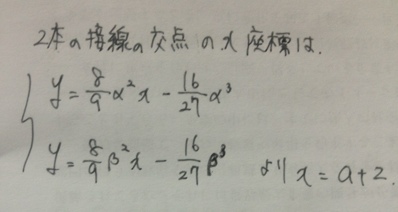 2本の接線の交点のx座標は.
y = 8/9 α²x - 16/27 α³
y = 8/9 β²x - 16/27 β³ より x = a+2.